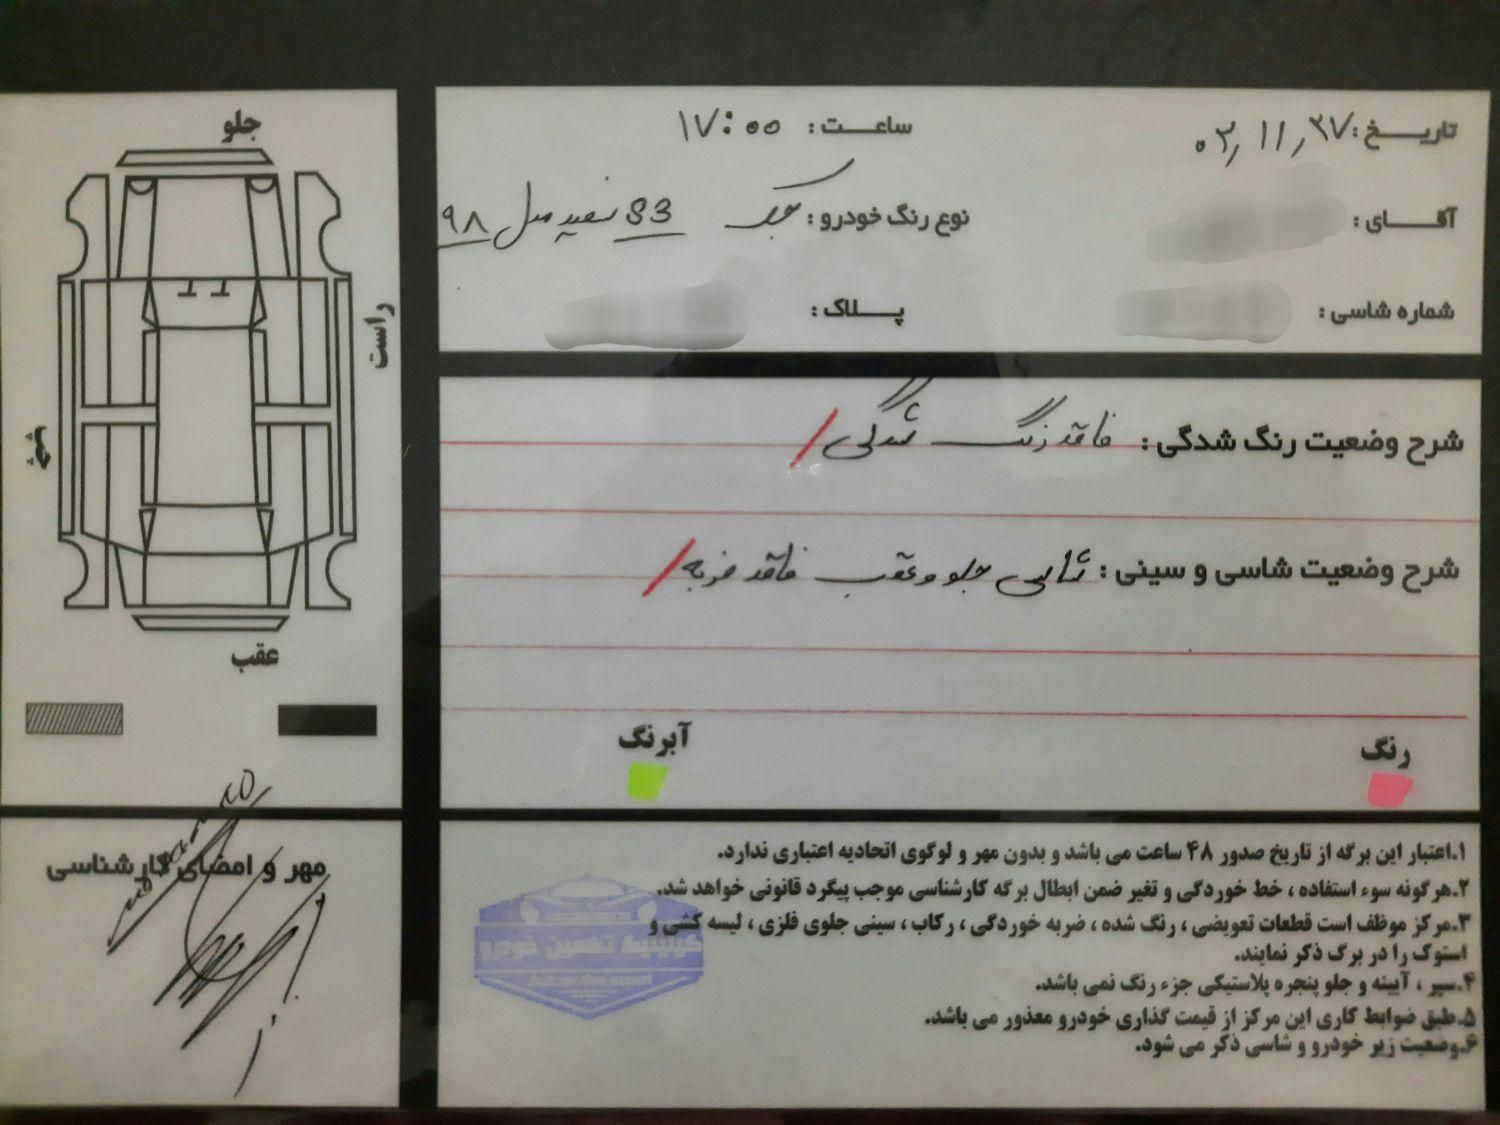 جلو
راست
چپ
عقب
تاریخ: ۰۳,۱۱,۲۷
ساعت: ۱۷:۰۰
آقای:
نوع رنگ خودرو: جک S3 سفید مدل ۹۸
شماره شاسی:
پلاک:
شرح وضعیت رنگ شدگی: فاقد رنگ شدگی/
شرح وضعیت شاسی و سینی: شاسی جلو و عقب فاقد ضربه/
رنگ
آبرنگ
مهر و امضای کارشناسی
۱.اعتبار این برگه از تاریخ صدور ۴۸ ساعت می باشد و بدون مهر و لوگوی اتحادیه اعتباری ندارد.
۲.هرگونه سوء استفاده ، خط خوردگی و تغیر ضمن ابطال برگه کارشناسی موجب پیگرد قانونی خواهد شد.
۳.مرکز موظف است قطعات تعویضی ، رنگ شده ، ضربه خوردگی ، رکاب ، سینی جلوی فلزی ، لیسه کشی و
استوک را در برگ ذکر نمایند.
۴.سپر ، آیینه و جلو پنجره پلاستیکی جزء رنگ نمی باشد.
۵.طبق ضوابط کاری این مرکز از قیمت گذاری خودرو معذور می باشد.
۶.وضعیت زیر خودرو و شاسی ذکر می شود.
کلینیک تخصصی خودرو
Automotive expert